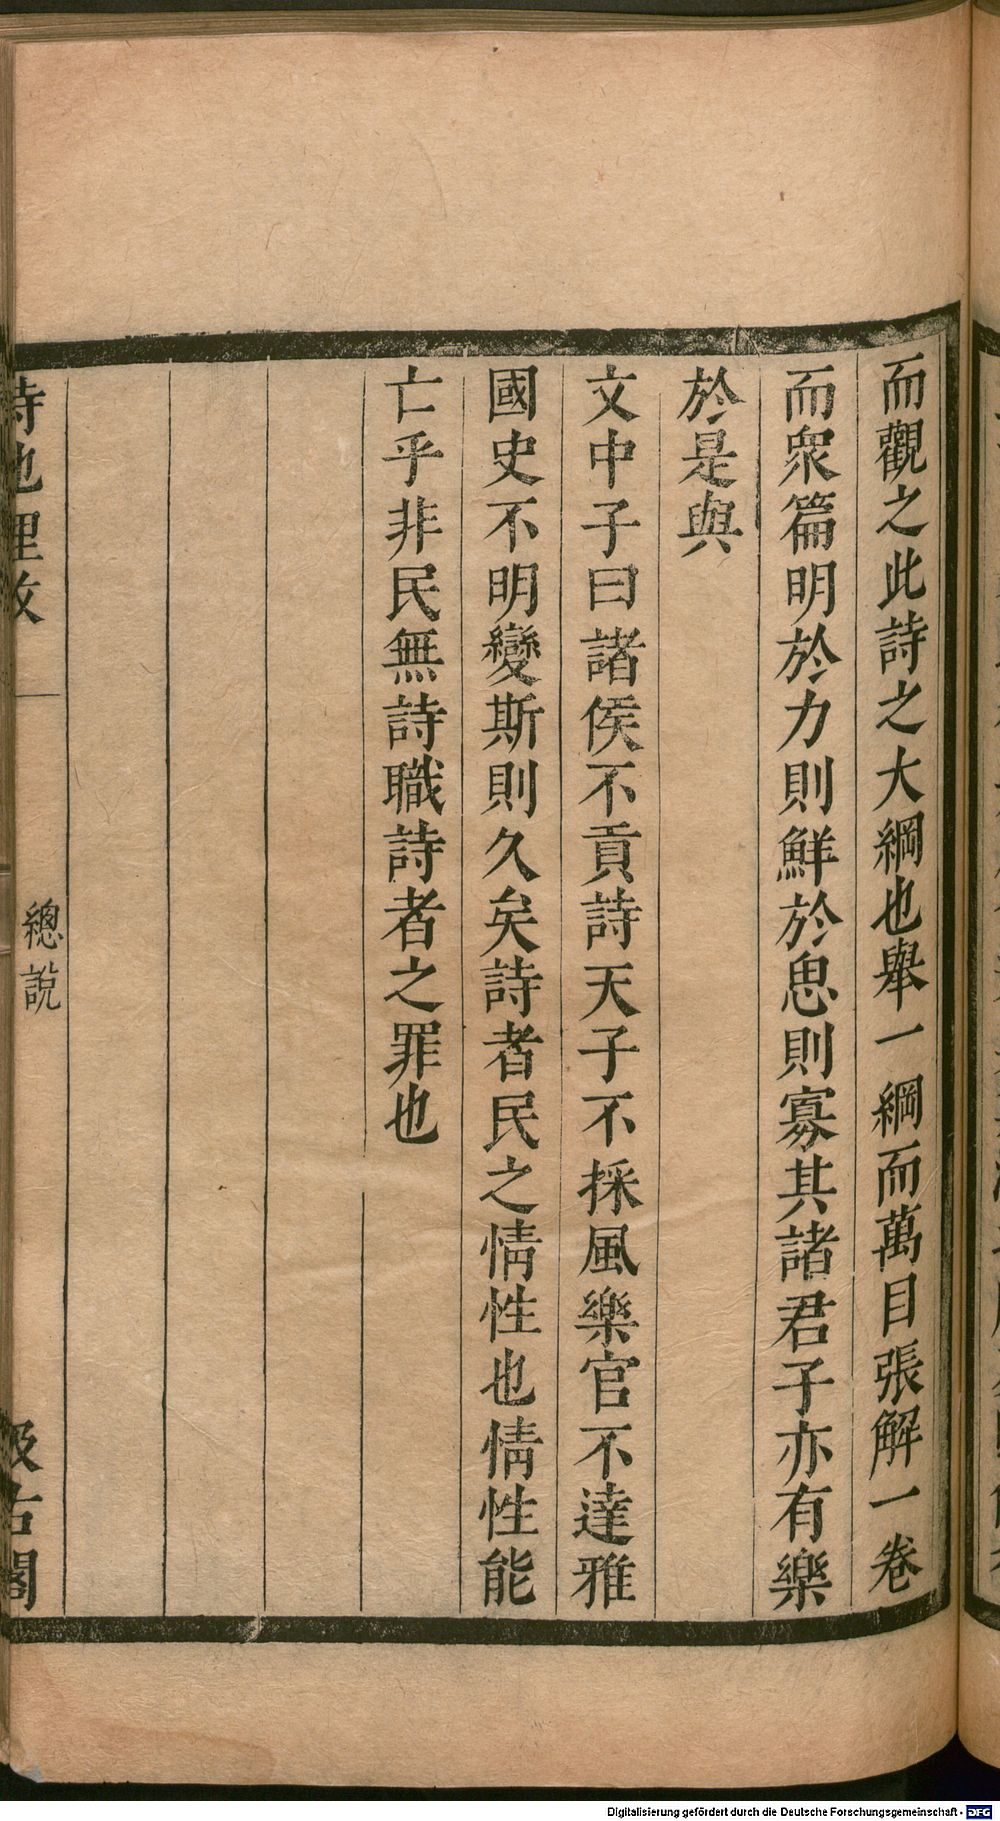 而觀之此詩之大綱也舉一綱而萬目張解一卷
而衆篇明於力則鮮於思則寡其諸君子亦有樂
於是與
文中子曰諸侯不貢詩天子不採風樂官不達雅
國史不明變斯則久矣詩者民之情性也情性能
亡乎非民無詩職詩者之罪也
詩地理攷
總說
汲古閣
Digitalisierung gefördert durch die Deutsche Forschungsgemeinschaft - DFG